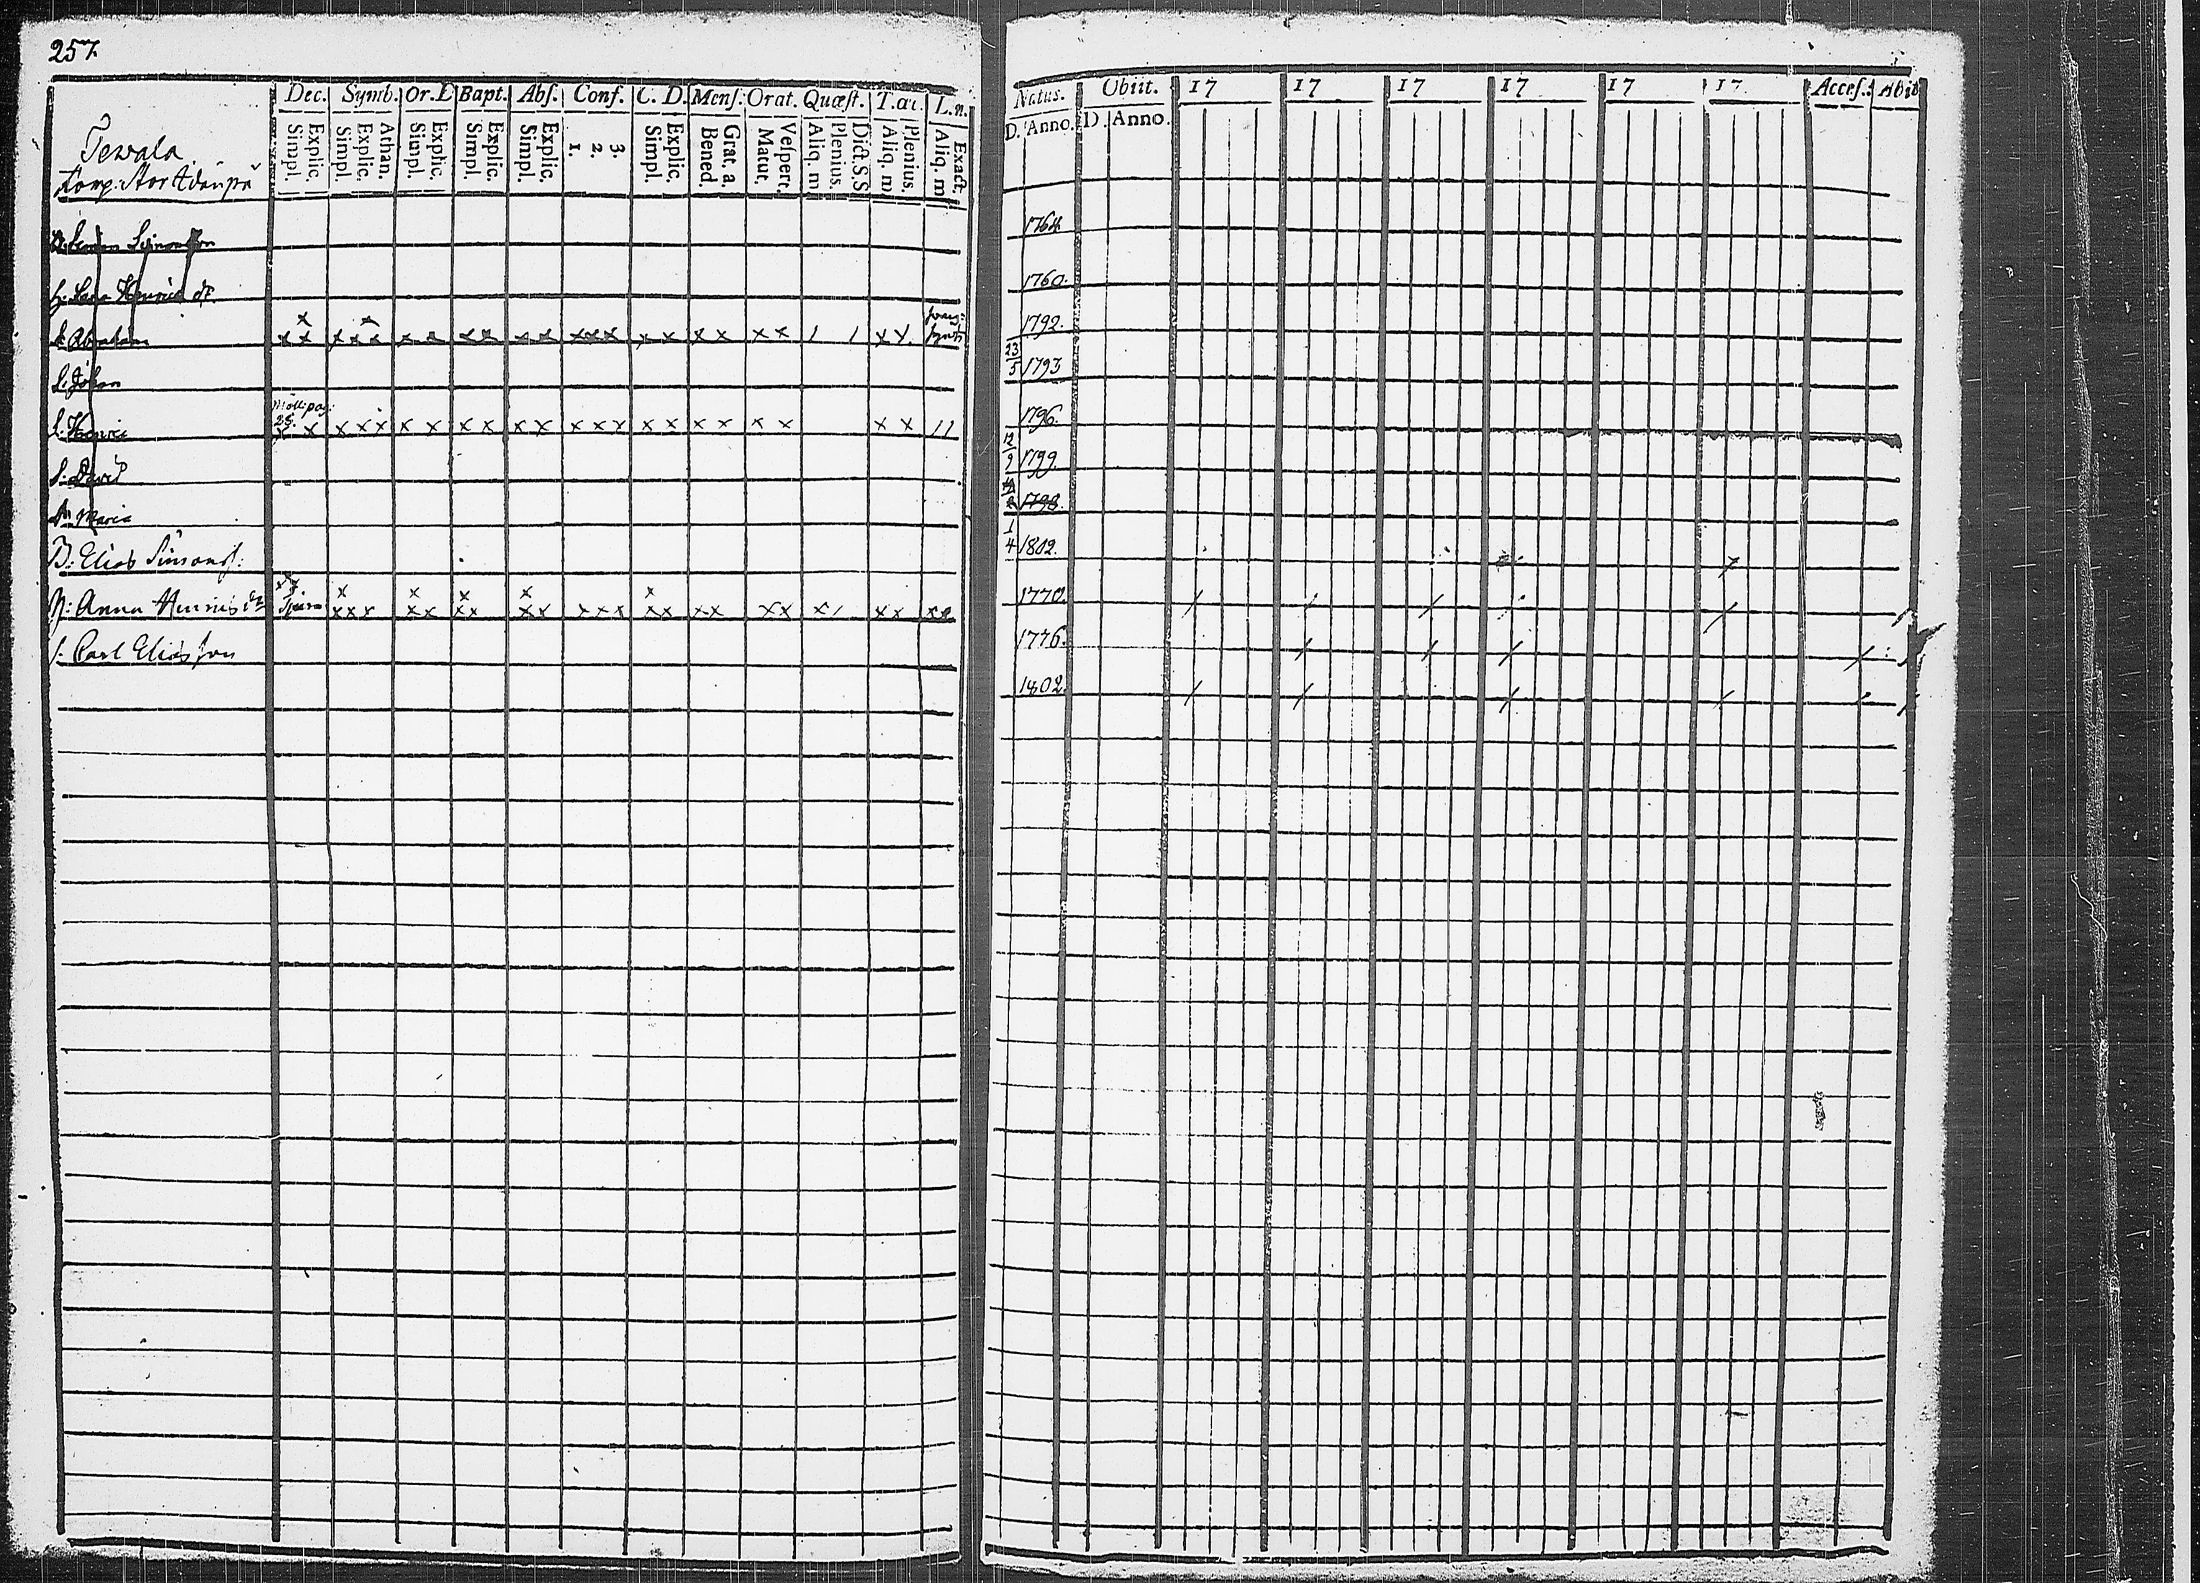 257
Dec. Symb. Or. D Bapt. Abs. Conf. C. D. Mens. Orat. Quæst. T. œc. L. n.
Explic. Simpl. Athan. Explic. Simpl. Explic. Simpl. Explic. Simpl. Explic. Simpl. 3. 2. 1. Explic. Simpl. Grat. a. Bened. Vespert. Matut. Dict. S.S Plenius. Aliq. m Plenius. Aliq. m Exact. Aliq. m
Natus. Obiit. 17 17 17 17 17 17 Acces.: Abit
D. Anno. D. Anno.
Tewala
Simonsson 1764
H: Henrics dr. 1760.
S. Abraham x x x x x x x x x x x x x x x x x x x x x x x x x 1 1 x x 1792.
S. Johan 23/5 1793
S. Henric x x x x x x x x x x x x x x x x x x x x x x x 1 1 1796.
S. David 12/9 1799.
Maria 1798.
1/4 1802.
B: Elias Simons: 1770.
H: Anna Henrics dr x x x x x x x x x x x x x x x x x x x x x x x x x x 1776.
S. Carl Eliasson 1802.